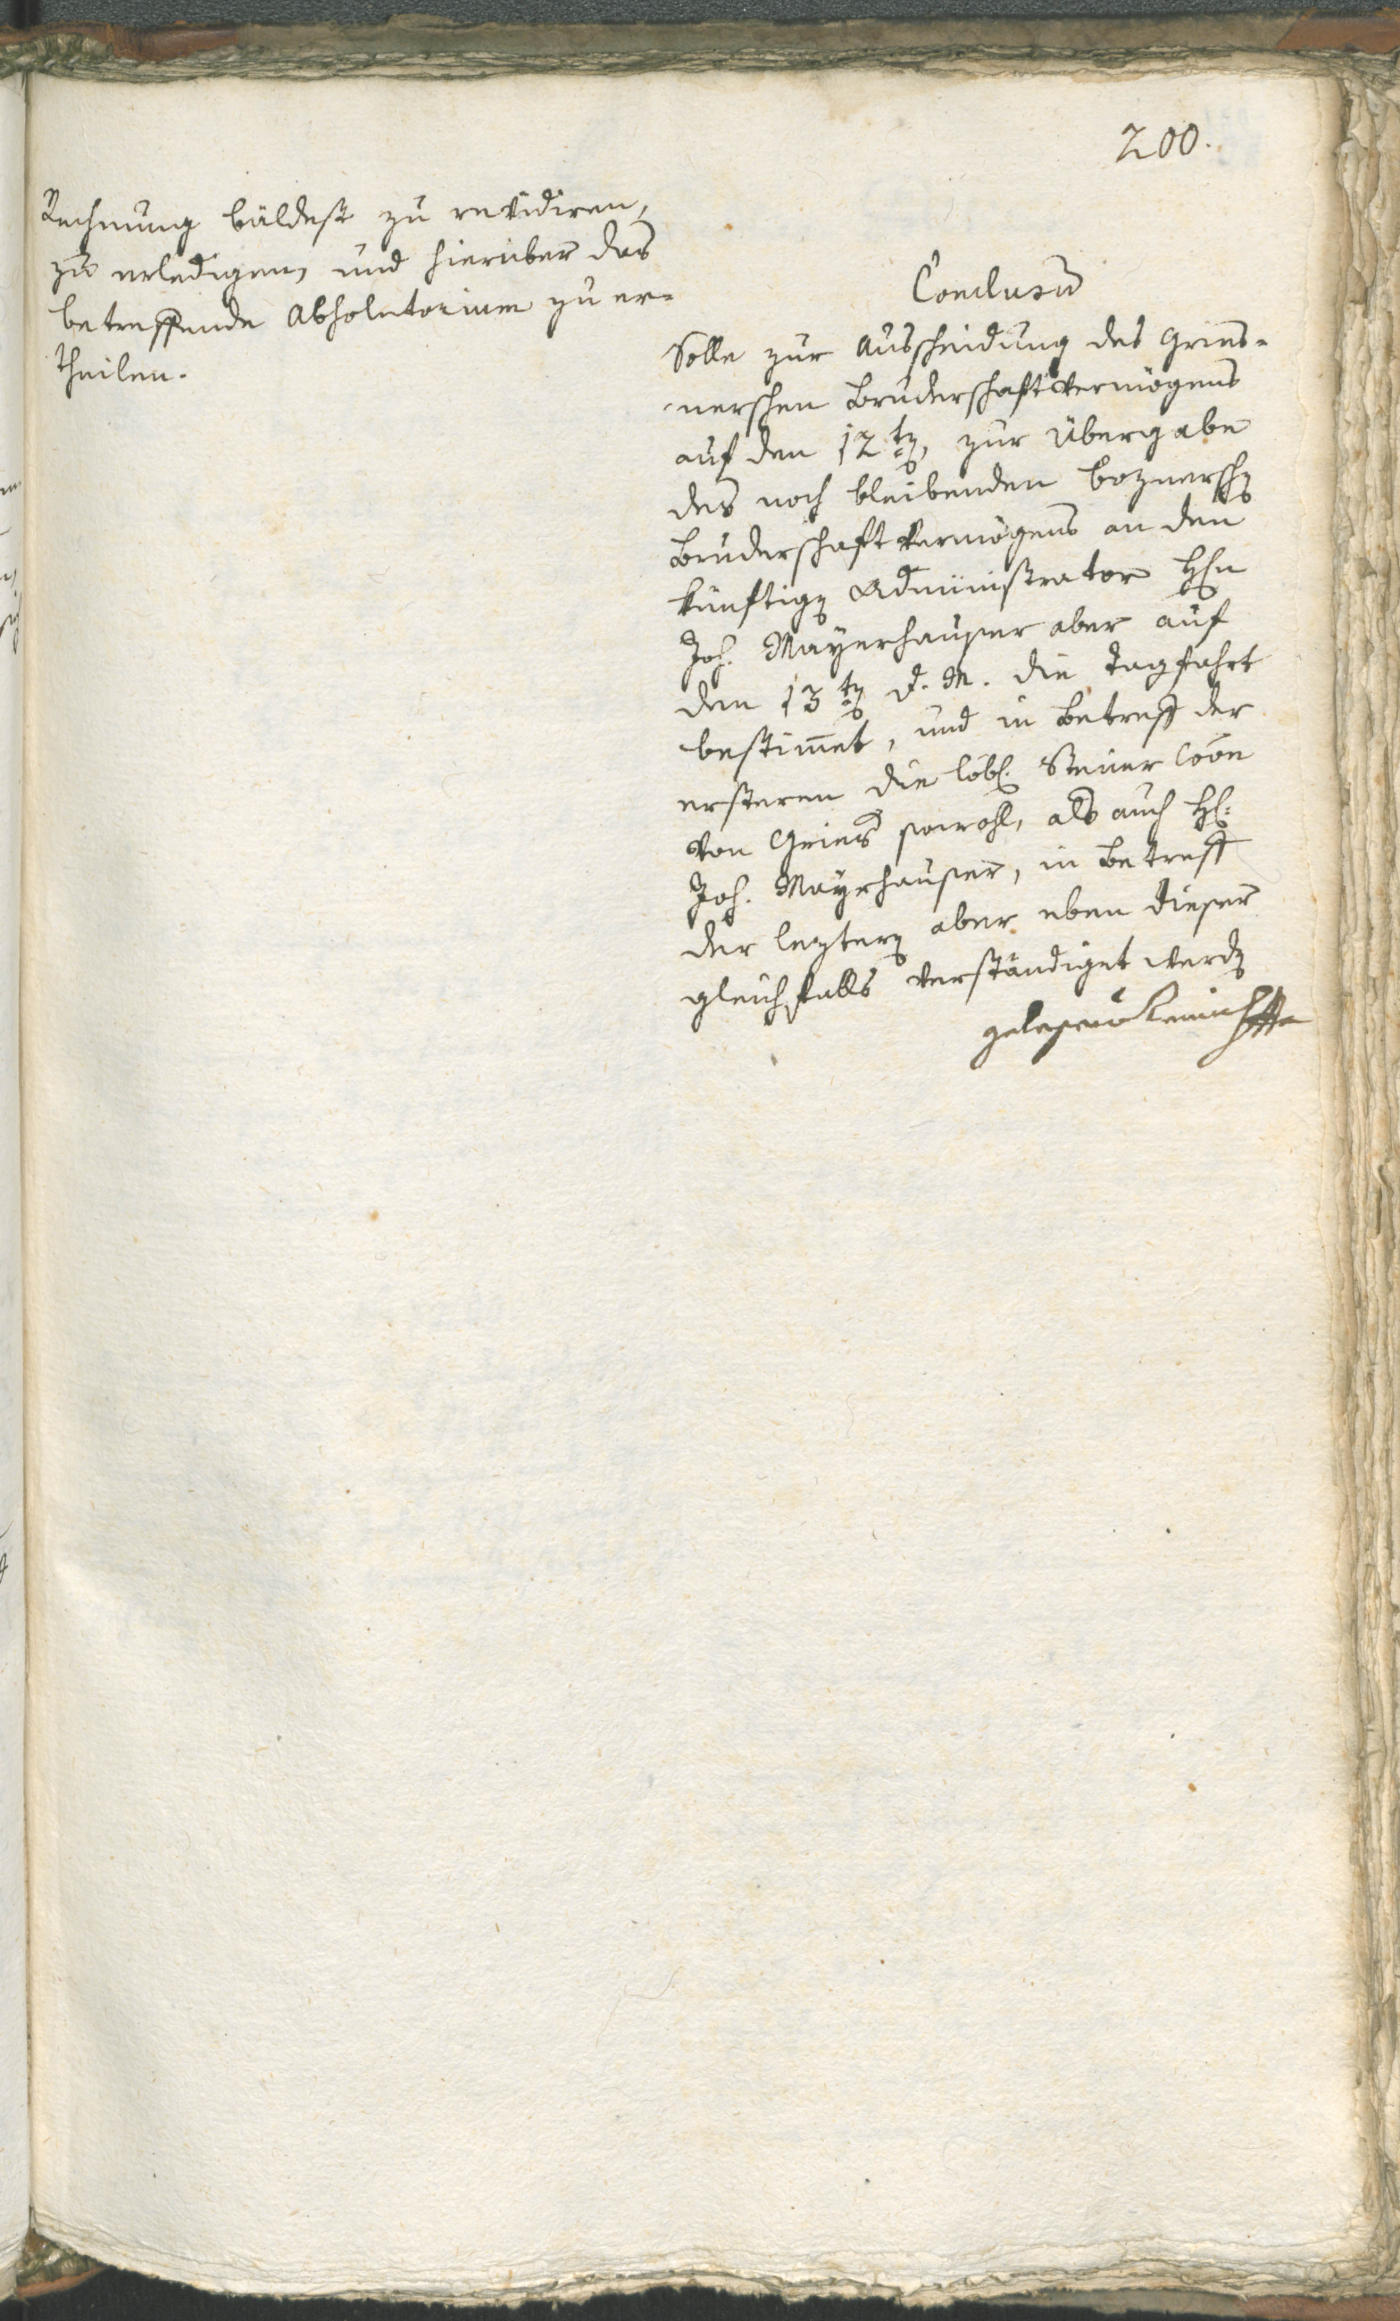 200.
Rechnung bäldest zu revidiren,
zu erledigen, und hierüber das
betreffende Absolutorium zu er=
theilen.
Conclusum̅
Solle zur Ausscheidung des Gries=
nerschen Bruderschaftvermögens
auf den 12t, zur Übergabe
des noch bleibenden boznersch
Bruderschaftvermögens an den
künftig Administrator Hrn
Joh. Mayerhauser aber auf
den 13t d. M. die Tagfahrt
bestim̅et, und in Betreff der
ersteren die löbl. Steuer Coon
von Gries sowohl, als auch H:
Joh. Mayrhauser, in Betreff
der lezter aber eben dieser
gleichfalls verständiget werd
gelesen